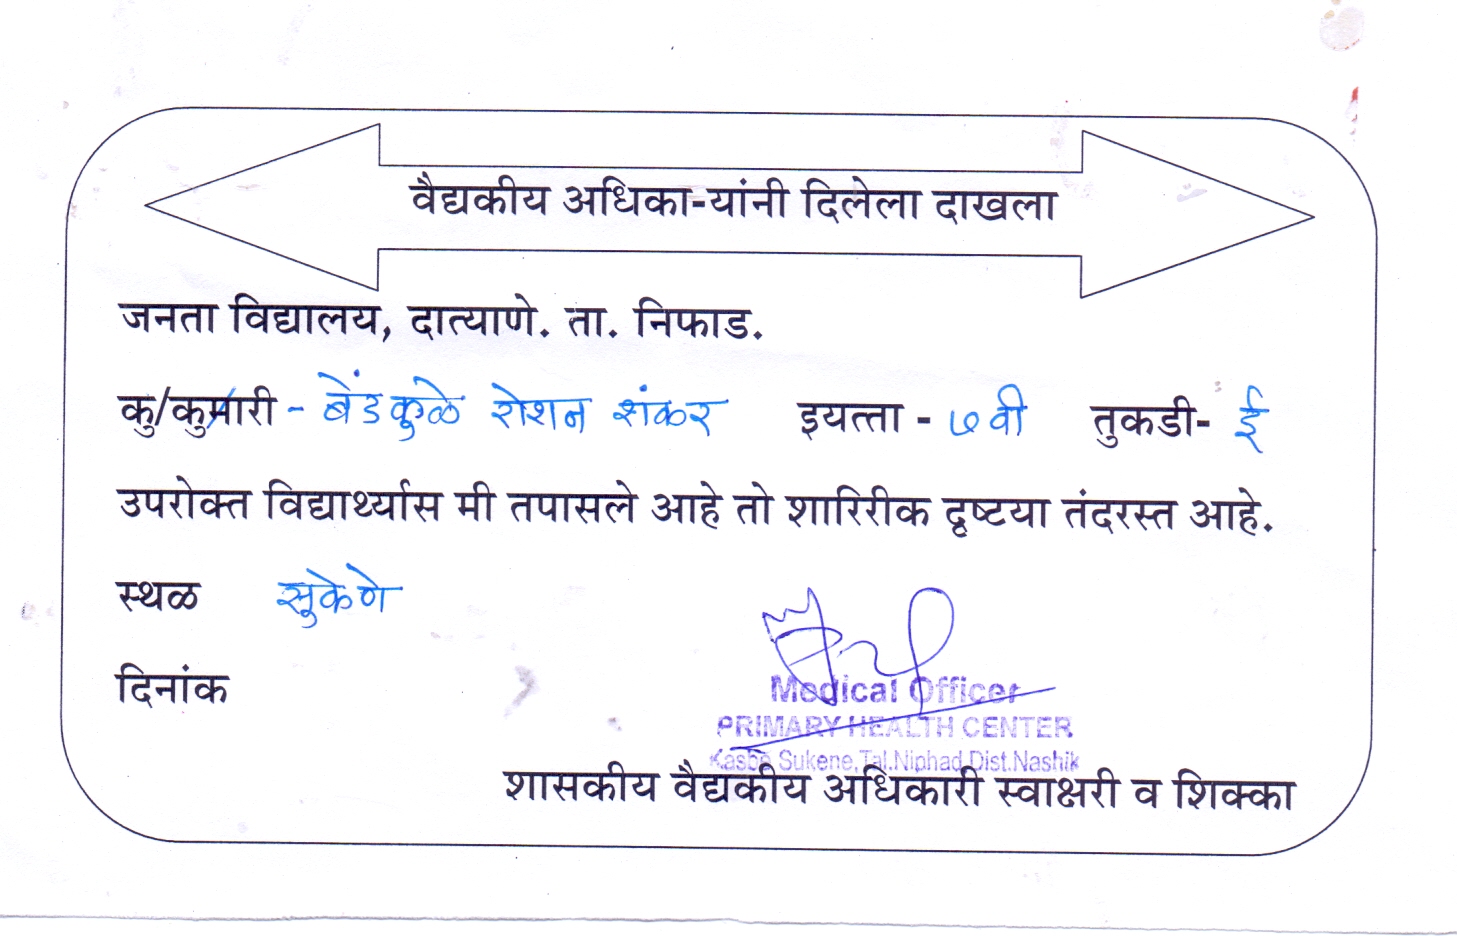 वैद्यकीय अधिका-यांनी दिलेला दाखला
जनता विद्यालय, दात्याणे. ता. निफाड.
कु/कुमारी - बेंडकुळे रोशन शंकर इयत्ता - ७वी तुकडी- ई
उपरोक्त विद्यार्थ्यास मी तपासले आहे तो शारिरीक दृष्टया तंदरस्त आहे.
स्थळ सुकेणे
दिनांक
Medical Officer
PRIMARY HEALTH CENTER
Kasbe Sukene,Tal.Niphad,Dist.Nashik
शासकीय वैद्यकीय अधिकारी स्वाक्षरी व शिक्का